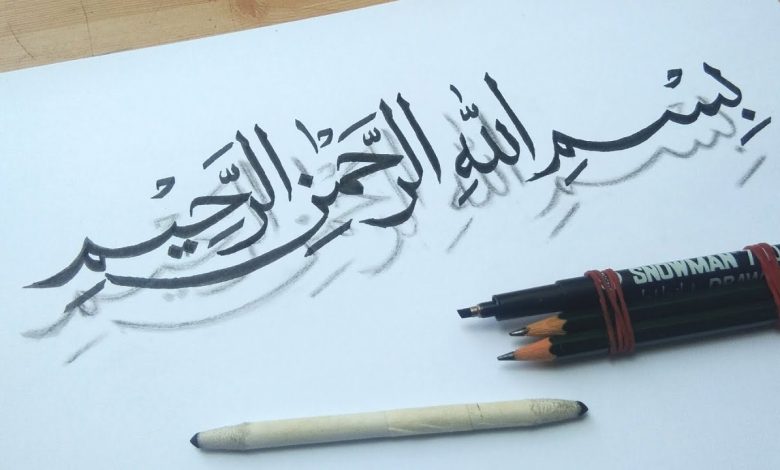 بِسْمِ اللّٰهِ الرَّحْمٰنِ الرَّحِيْمِ
SNOWMAN
DRAW